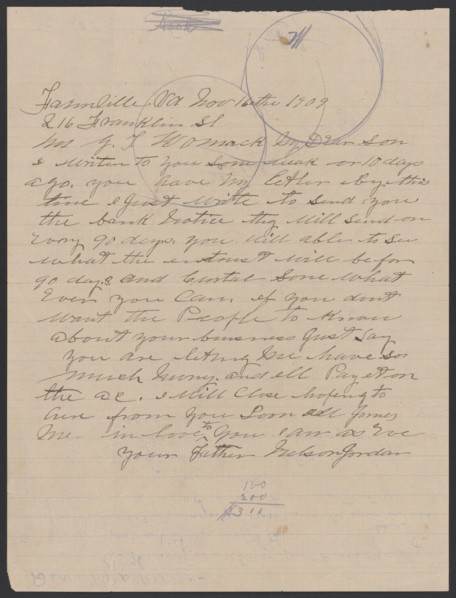 Farmville Va Nov 16the 1909
216 Franklin St
Mrs Y. L Womack My Dear Son
I writen to you some weak or 10 days
ago. you have my letter by this
time I Just write to send you
the bank notice they will send on
Every 90 days. you will able to see
what the will be for
90 days and Curtal some what
Ever you can. if you dont
want the People to Know
about your business Just Say
you are leting me have so
much muny and ill Pay it on
the I will close hoping to
from you soon all Joines
me in love to you I am as Eve
your Father Nelson Jordan
100
200